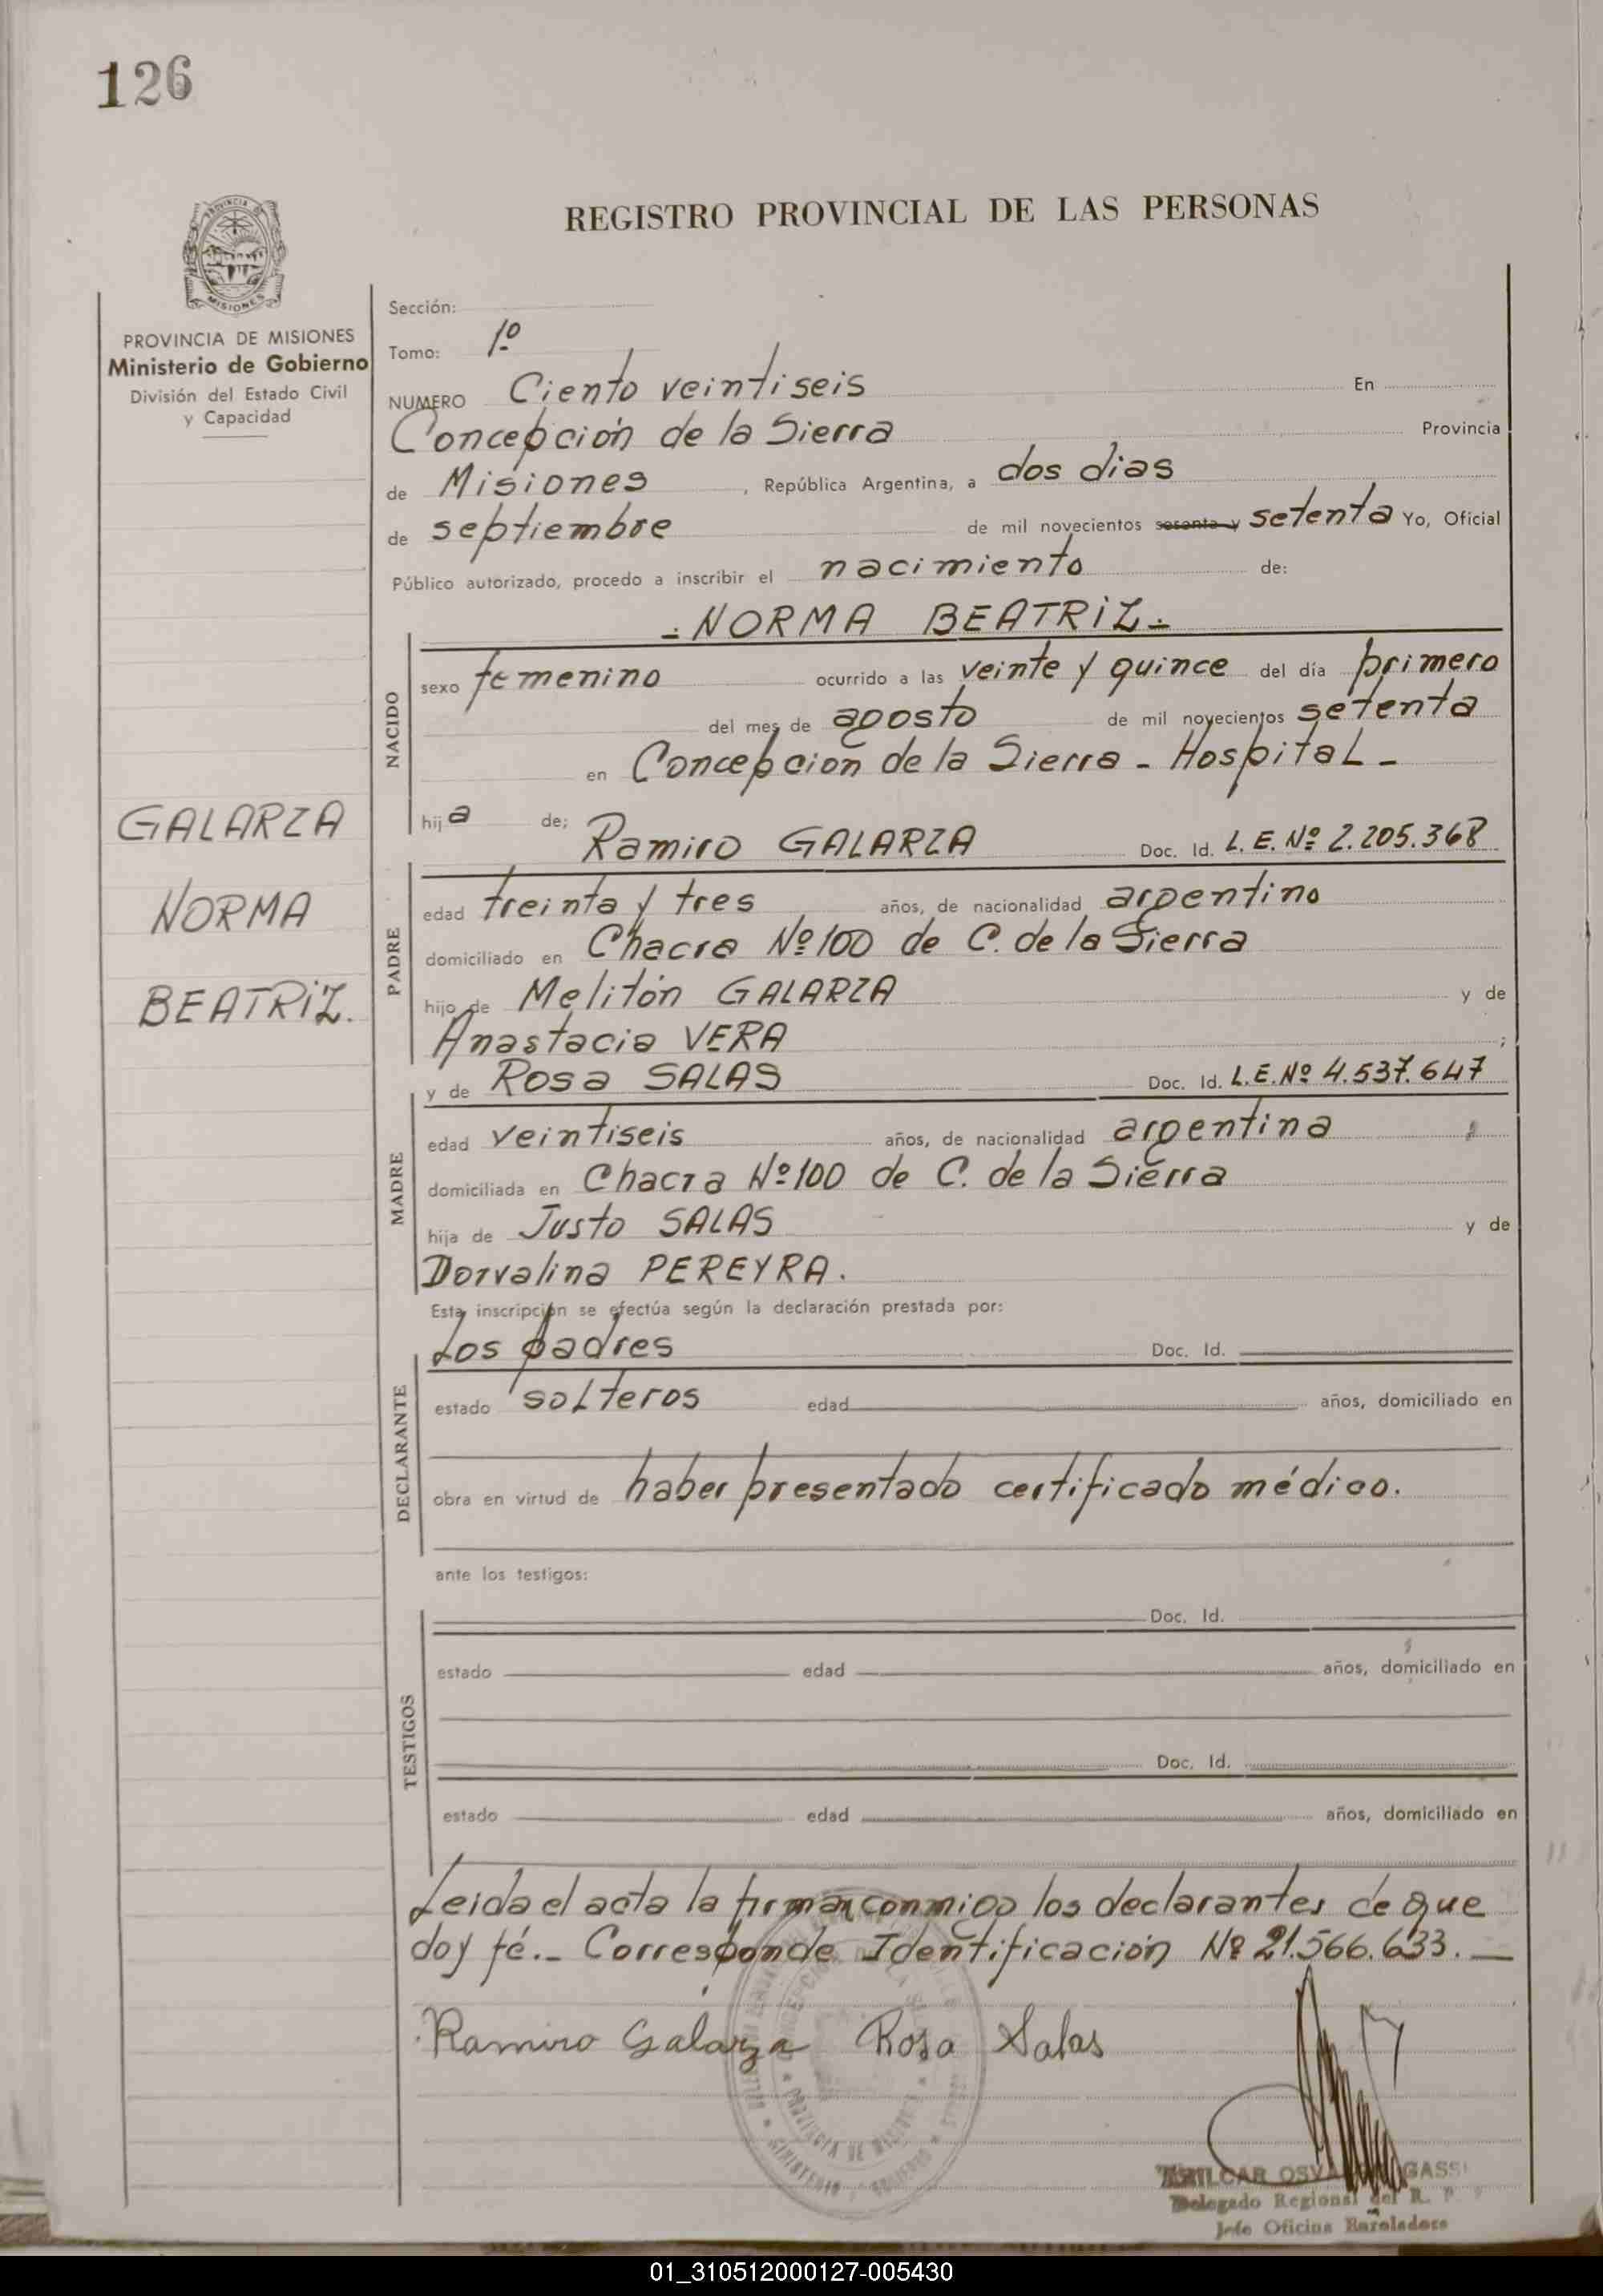 126
REGISTRO PROVINCIAL DE LAS PERSONAS
PROVINCIA
MISIONES
PROVINCIA DE MISIONES
Ministerio de Gobierno
División del Estado Civil
y Capacidad
Sección:
Tomo: 1º
NUMERO Ciento veintiseis En
Concepción de la Sierra Provincia
de Misiones , República Argentina, a dos dias
de septiembre de mil novecientos sesenta y setenta Yo, Oficial
Público autorizado, procedo a inscribir el nacimiento de:
- NORMA BEATRIZ -
NACIDO
sexo femenino ocurrido a las veinte y quince del día primero
del mes de agosto de mil novecientos setenta
en Concepcion de la Sierra - Hospital -
hija de; Ramiro GALARZA Doc. Id. L. E. Nº 2.205.368
GALARZA
NORMA
BEATRIZ.
PADRE
edad treinta y tres años, de nacionalidad argentino
domiciliado en Chacra Nº 100 de C. de la Sierra
hijo de Melitón GALARZA y de
Anastacia VERA ;
y de Rosa SALAS Doc. Id. L.E.Nº 4.537.647
MADRE
edad veintiseis años, de nacionalidad argentina
domiciliada en Chacra Nº 100 de C. de la Sierra
hija de Justo SALAS y de
Dorvalina PEREYRA.
Esta inscripción se efectúa según la declaración prestada por:
Los padres Doc. Id.
DECLARANTE
estado solteros edad años, domiciliado en
obra en virtud de haber presentado certificado médico.
ante los testigos:
TESTIGOS
Doc. Id.
estado edad años, domiciliado en
Doc. Id.
estado edad años, domiciliado en
Leida el acta la firman conmigo los declarantes de que
doy fé.- Corresponde Identificación Nº 21.566.633. —
Ramiro Galarza Rosa Salas
Delegado Regional del R. P.
Jefe Oficina
01_310512000127-005430